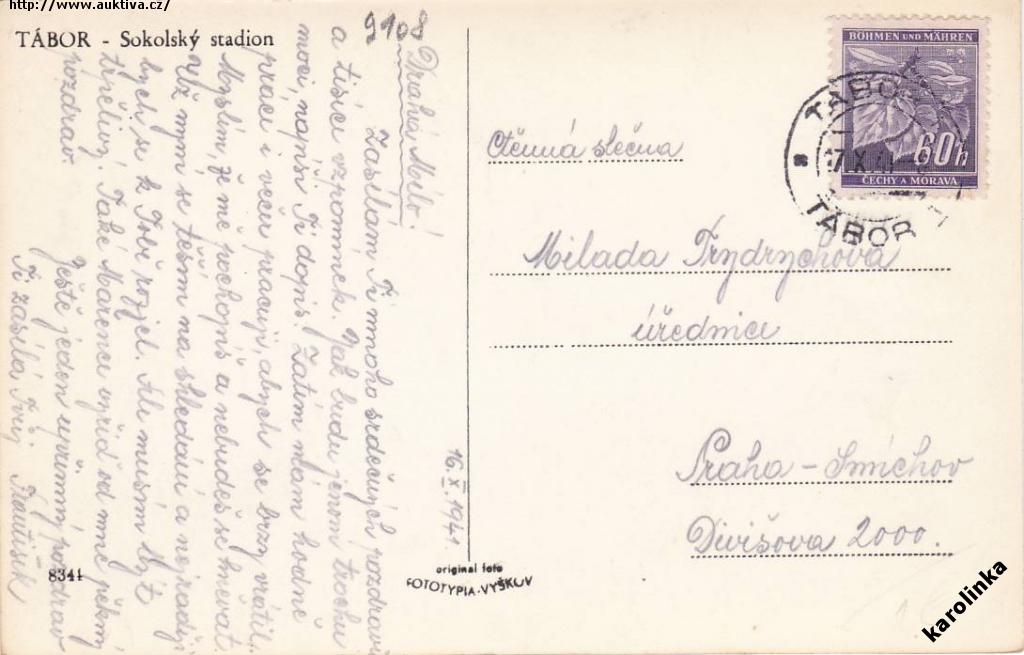 http://www.auktiva.cz/
TÁBOR - Sokolský stadion
9108
Drahá Mílo!
Zasílám Ti mnoho srdečných pozdravů
a tisíce vzpomínek. Jak budu jenom trochu
moci, napíši Ti dopis. Zatím mám hodně
práce i večer pracuji, abych se brzy vrátil.
Myslím, že mě pochopíš a nebudeš se hněvat.
Již nyní se těším na shledání a nejraději
bych se k Tobě rozjel. Ale musím být
trpělivý. Také Mařence vyřiď ode mne pěkný
pozdrav.
Ještě jeden upřímný pozdrav
Ti zasílá Tvůj Frantíšek
16.X.1941.
8341
original foto
FOTOTYPIA-VYŠKOV
BÖHMEN UND MÄHREN
60h
ČECHY A MORAVA
TÁBOR
TÁBOR
Ctěnná slečna
Milada Frydrychová
úřednice
Praha - Smíchov
Divišova 2000.
karolinka